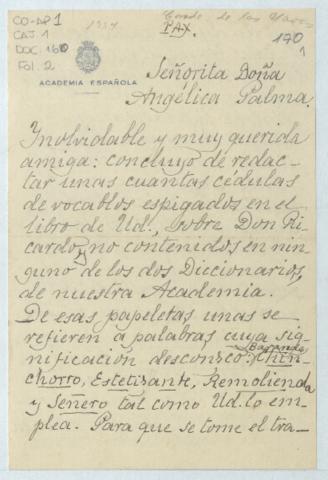 CO-AP1
CAJ. 1
DOC. 160
FOL. 2
1934
Conde de las Navas
PAX.
170
1
ACADEMIA ESPAÑOLA
Señorita Doña
Angélica Palma.
Inolvidable y muy querida
amiga: concluyo de redac-
tar unas cuantas cédulas
de vocablos espigados en el
libro de Ud., sobre Don Ri-
cardo, y no contenidos en nin-
guno de los dos Diccionarios,
de nuestra Academia.
De esas papeletas unas se
refieren a palabras cuya sig-
nificación desconozco: Chin-
chorro, Estetizante, Remolienda
y Señero tal como Ud. lo em-
plea. Para que se tome el tra-